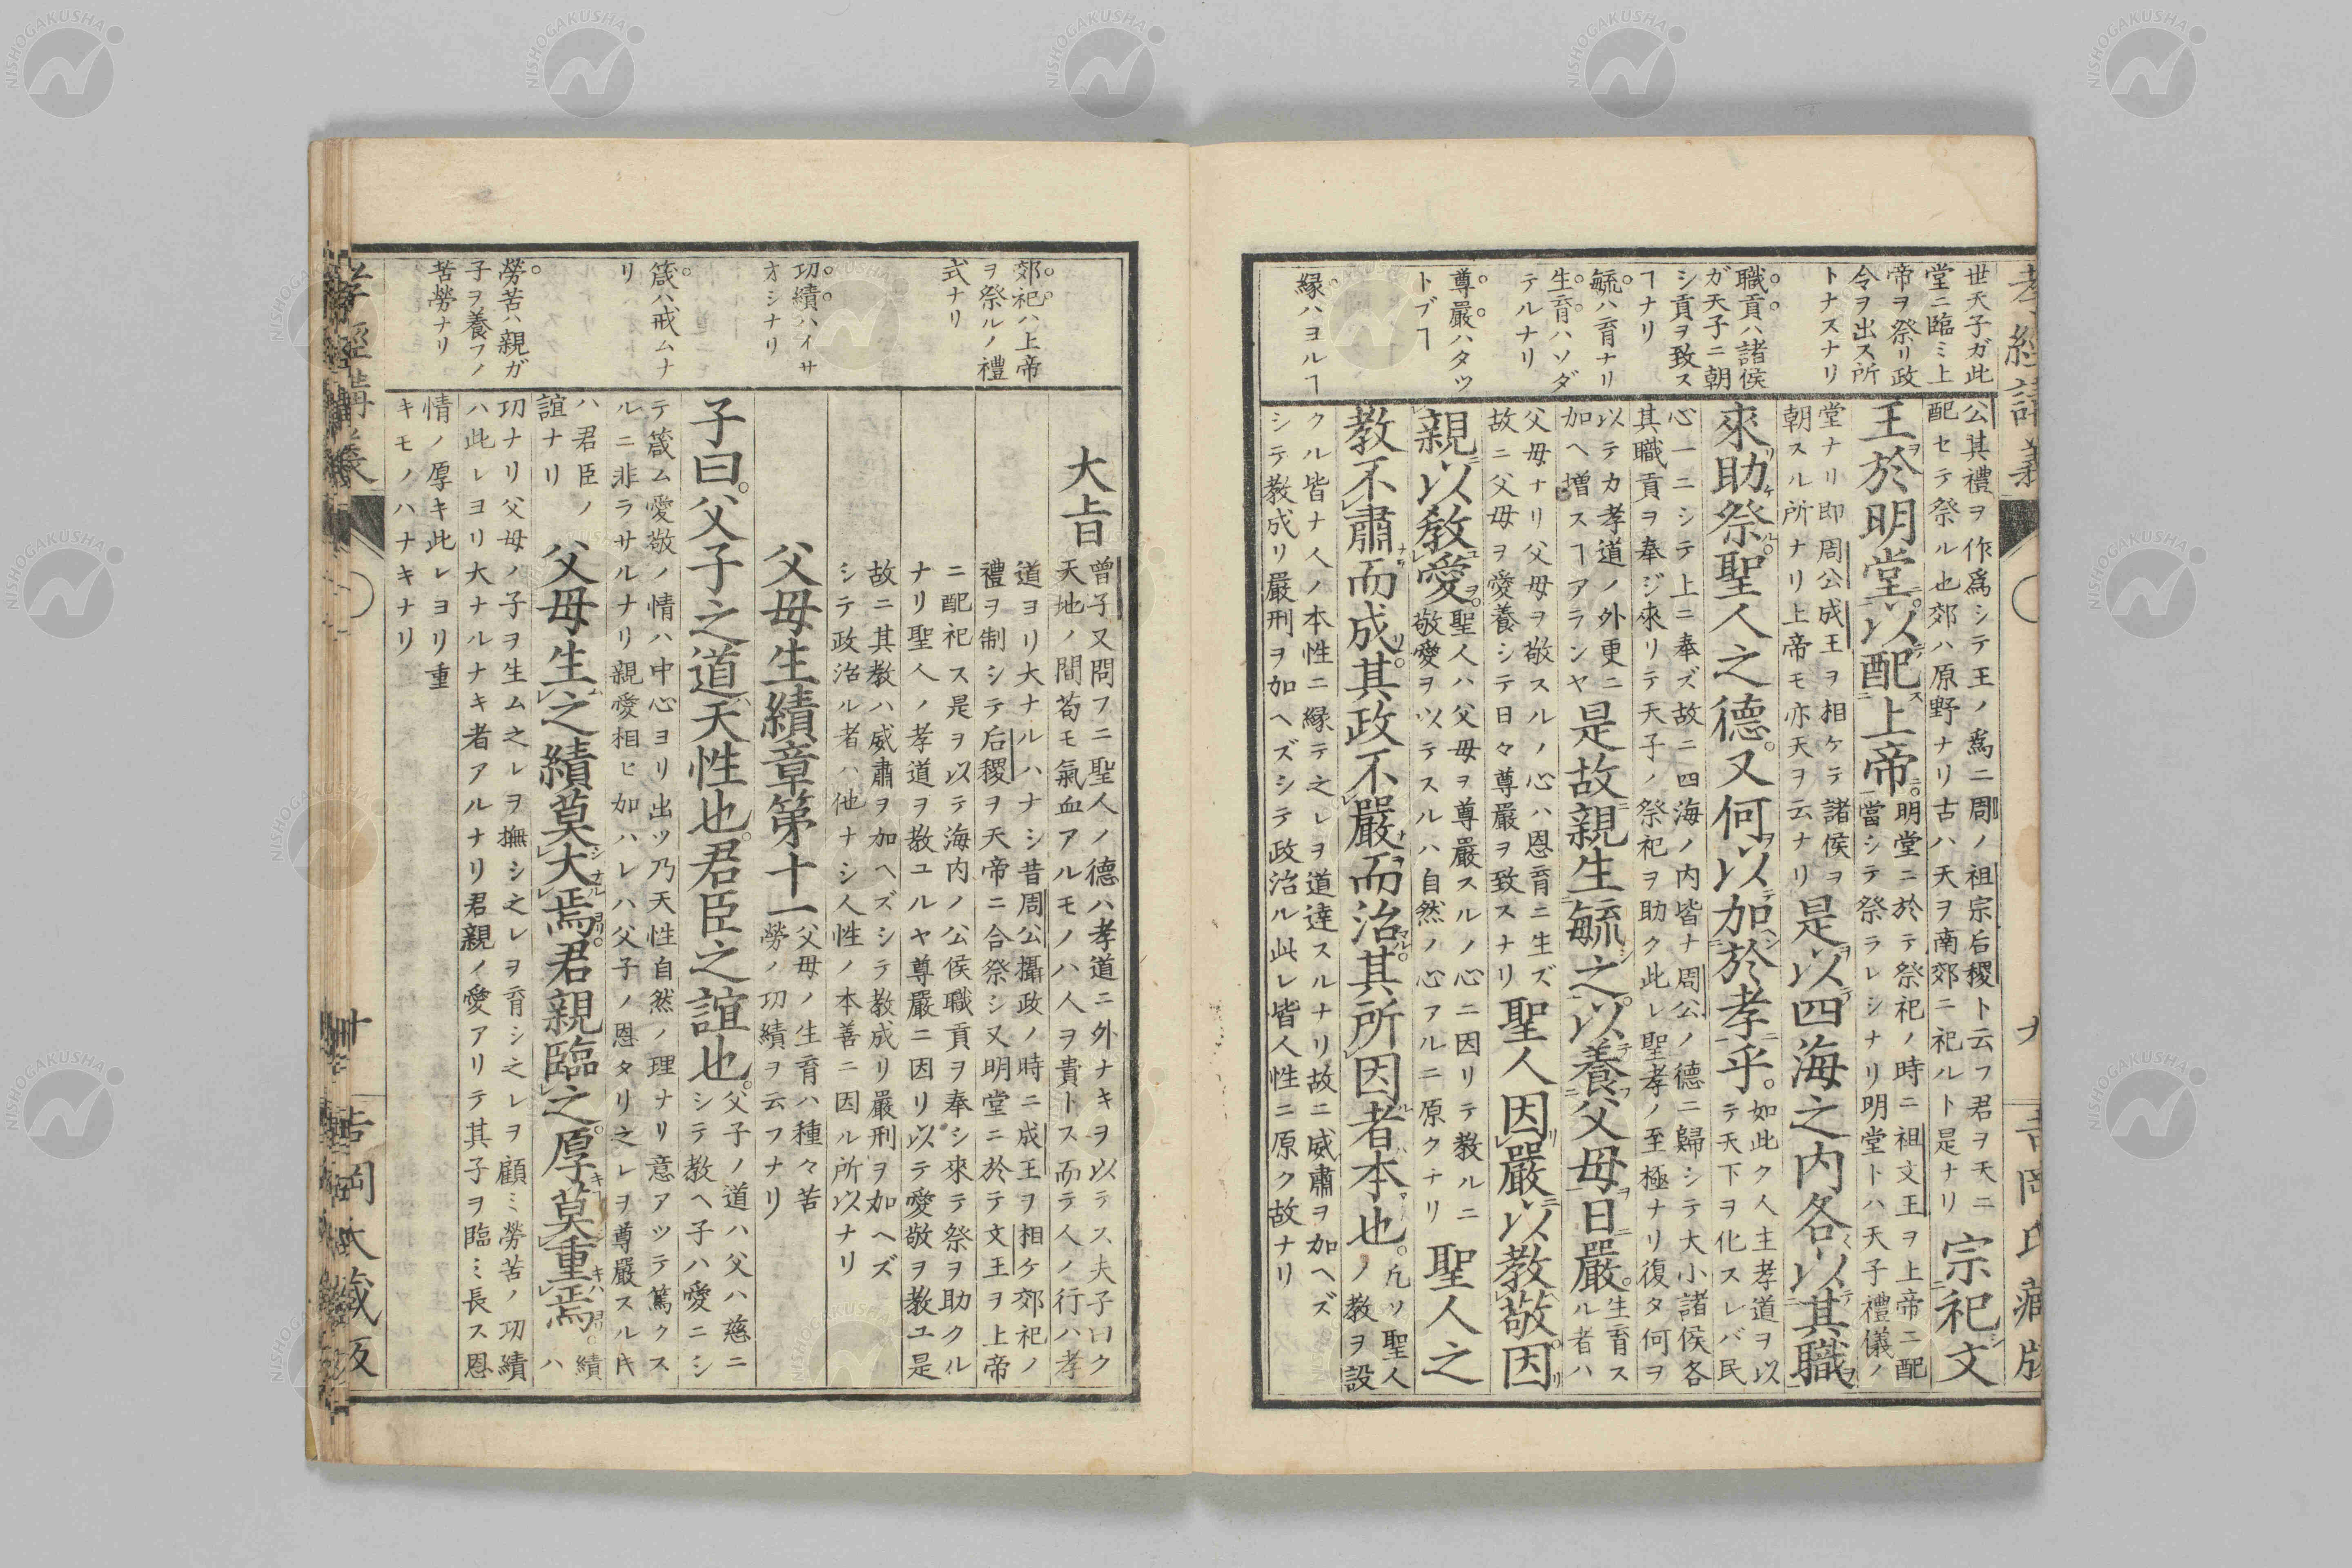 世天子ガ此
堂ニ臨ミ上
帝ヲ祭リ政
令ヲ出ス所
トナスナリ
職貢ハ諸侯
ガ天子ニ朝
シ貢ヲ致ス
ヿナリ
毓ハ育ナリ
生育ハソダ
テルナリ
尊嚴ハタツ
トブヿ
縁ハヨルヿ
公其禮ヲ作爲シテ王ノ爲ニ周ノ祖宗后稷ト云フ君ヲ天ニ
配セテ祭ル也郊ハ原野ナリ古ハ天ヲ南郊ニ祀ルト是ナリ
宗祀文
王於明堂以配上帝
明堂ニ於テ祭祀ノ時ニ祖文王ヲ上帝ニ配
當シテ祭ラレシナリ明堂トハ天子禮儀ノ
堂ナリ即周公成王ヲ相ケテ諸侯ヲ
朝スル所ナリ上帝モ亦天ヲ云ナリ
是以四海之内各以其職
來助祭聖人之德又何以加於孝乎
如此ク人主孝道ヲ以
テ天下ヲ化スレバ民
心一ニシテ上ニ奉ズ故ニ四海ノ内皆ナ周公ノ德ニ歸シテ大小諸侯各
其職貢ヲ奉ジ來リテ天子ノ祭祀ヲ助ク此レ聖孝ノ至極ナリ復タ何ヲ
以テカ孝道ノ外更ニ
加ヘ増スヿアランヤ
是故親生毓之以養父母日嚴
生育ス
ル者ハ
父母ナリ父母ヲ敬スルノ心ハ恩育ニ生ズ
故ニ父母ヲ愛養シテ日々尊嚴ヲ致スナリ
聖人因嚴以教敬因
親以教愛
聖人ハ父母ヲ尊嚴スルノ心ニ因リテ教ルニ
敬愛ヲ以テスルハ自然ノ心アルニ原クナリ
聖人之
教不肅而成其政不嚴而治其所因者本也
凡ソ聖人
ノ教ヲ設
クル皆ナ人ノ本性ニ縁テ之レヲ道達スルナリ故ニ威肅ヲ加ヘズ
シテ教成リ嚴刑ヲ加ヘズシテ政治ル此レ皆人性ニ原ク故ナリ
郊祀ハ上帝
ヲ祭ルノ禮
式ナリ
功績ハイサ
オシナリ
箴ハ戒ムナ
リ
勞苦ハ親ガ
子ヲ養フノ
苦勞ナリ
大旨
曾子又問フニ聖人ノ德ハ孝道ニ外ナキヲ以テス夫子曰ク
天地ノ間苟モ氣血アルモノハ人ヲ貴トス而テ人ノ行ハ孝
道ヨリ大ナルハナシ昔周公攝政ノ時ニ成王ヲ相ケ郊祀ノ
禮ヲ制シテ后稷ヲ天帝ニ合祭シ又明堂ニ於テ文王ヲ上帝
ニ配祀ス是ヲ以テ海内ノ公侯職貢ヲ奉シ來テ祭ヲ助クル
ナリ聖人ノ孝道ヲ教ユルヤ尊嚴ニ因リ以テ愛敬ヲ教ユ是
故ニ其教ハ威肅ヲ加ヘズシテ教成リ嚴刑ヲ加ヘズ
シテ政治ル者ハ他ナシ人性ノ本善ニ因ル所以ナリ
父母生績章第十一
父母ノ生育ハ種々苦
勞ノ功績ヲ云フナリ
子曰父子之道天性也君臣之誼也
父子ノ道ハ父ハ慈ニ
シテ教ヘ子ハ愛ニシ
テ箴ム愛敬ノ情ハ中心ヨリ出ツ乃天性自然ノ理ナリ意アツテ篤クス
ルニ非ラサルナリ親愛相ヒ加ハレハ父子ノ恩タリ之レヲ尊嚴スル𪜈
ハ君臣ノ
誼ナリ
父母生之績莫大焉君親臨之厚莫重焉
績
ハ
功ナリ父母ノ子ヲ生ム之レヲ撫シ之レヲ育シ之レヲ顧ミ勞苦ノ功績
ハ此レヨリ大ナルナキ者アルナリ君親ノ愛アリテ其子ヲ臨ミ長ス恩
情ノ厚キ此レヨリ重
キモノハナキナリ
吉岡氏藏版
NISHOGAKUSHA
NISHOGAKUSHA
NISHOGAKUSHA
NISHOGAKUSHA
NISHOGAKUSHA